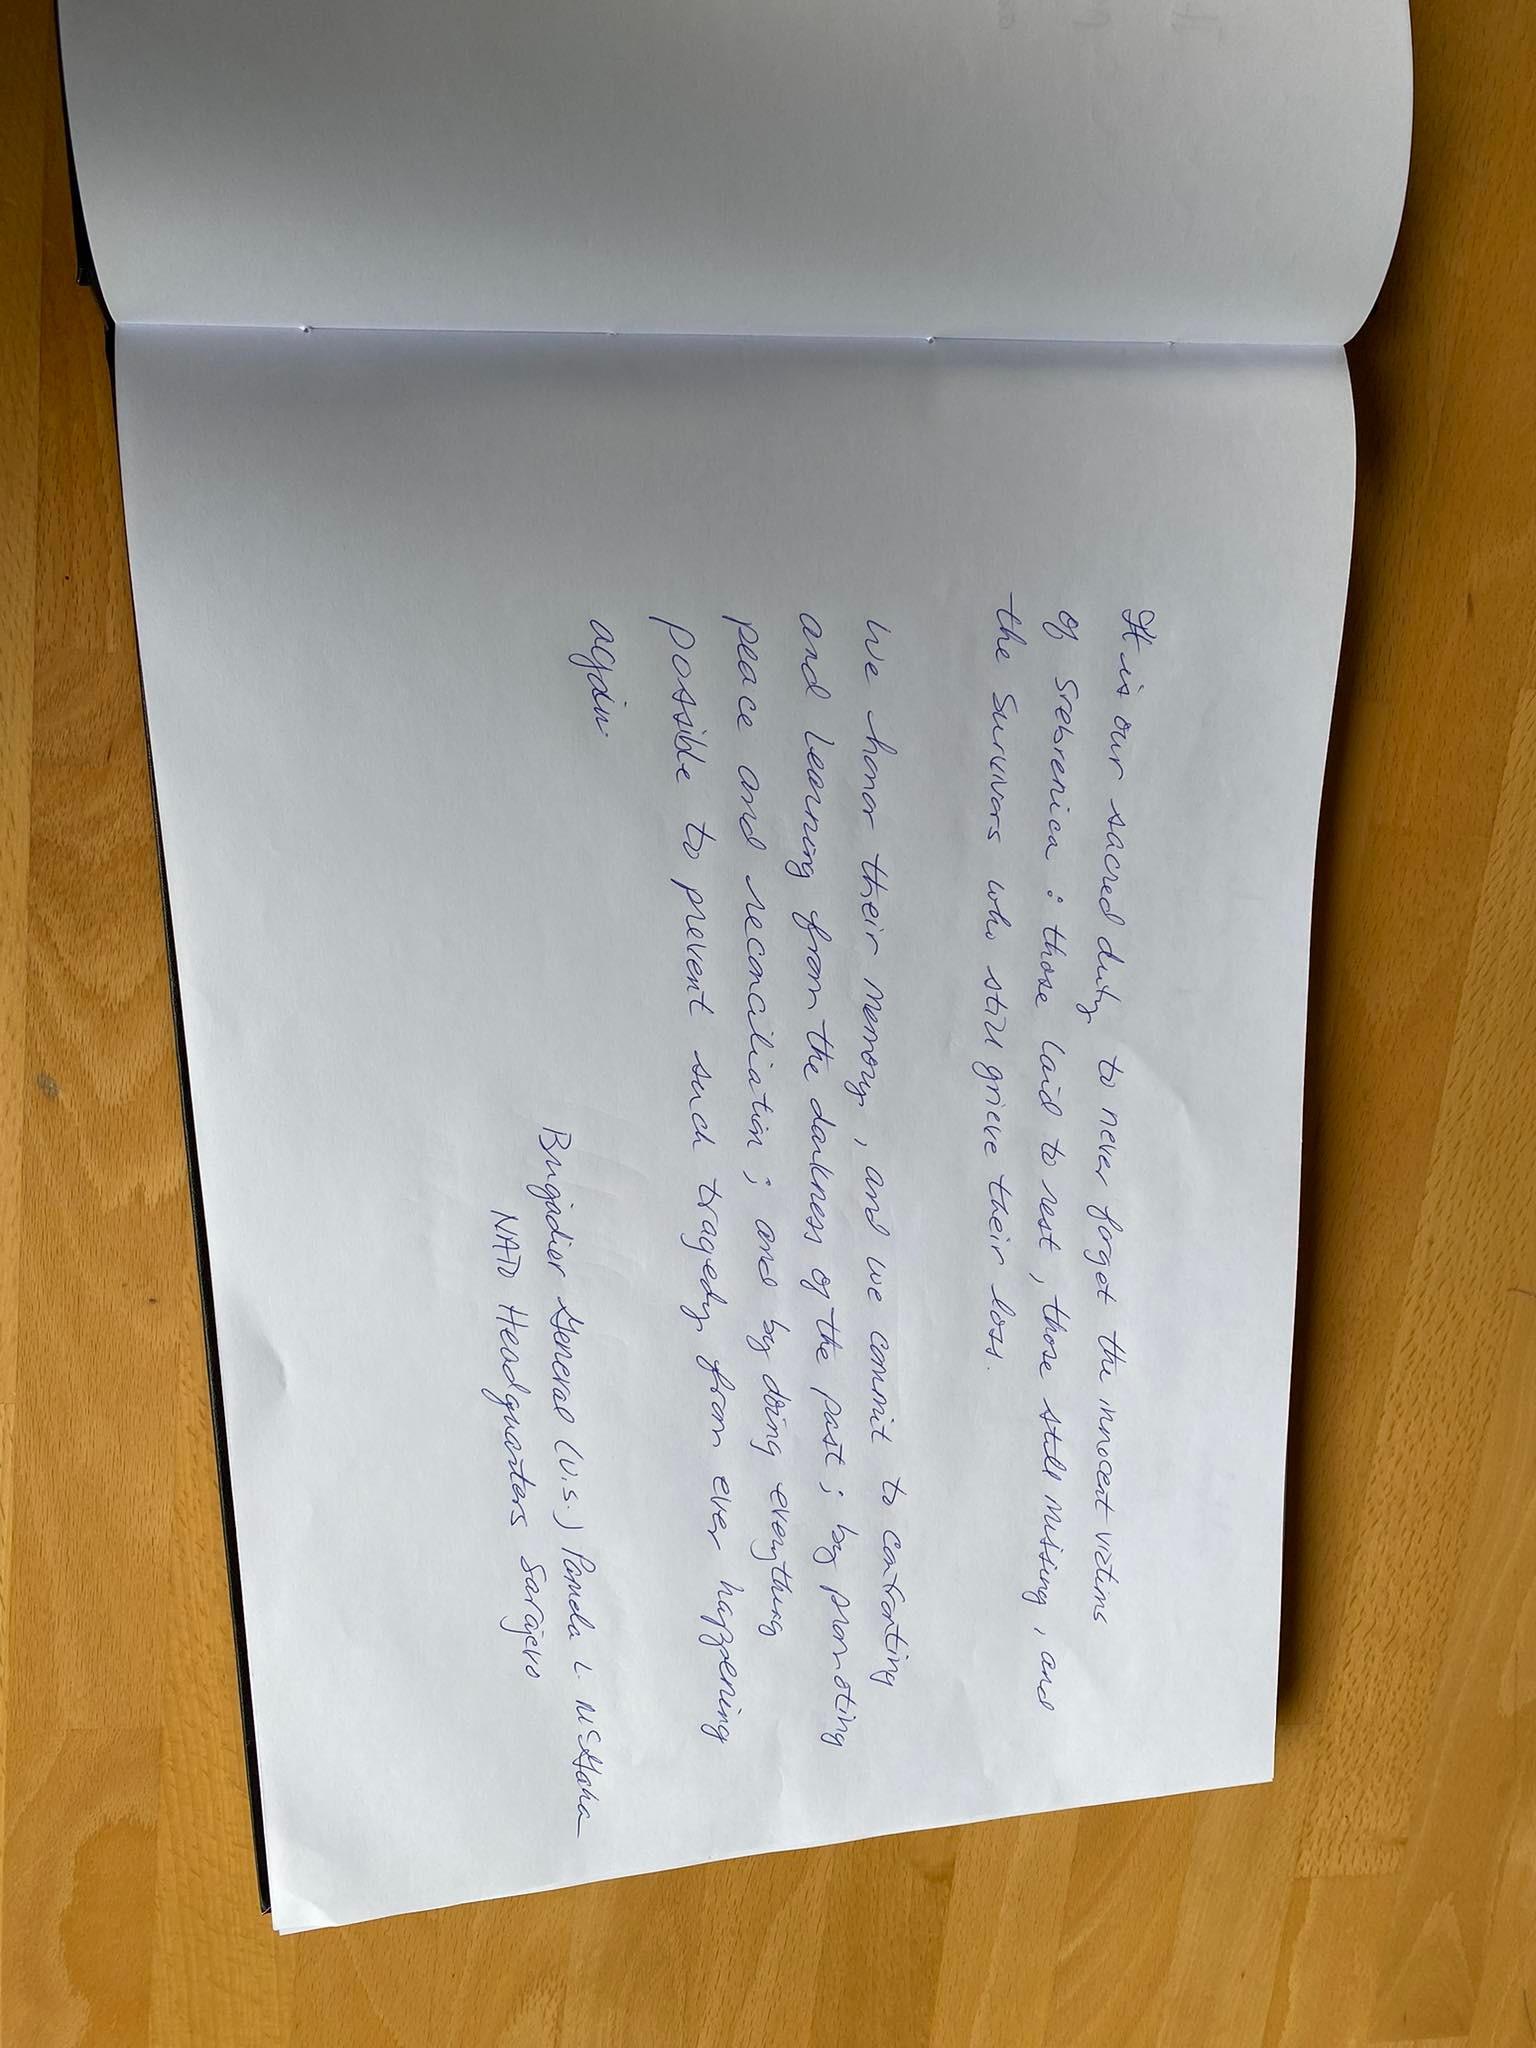 It is our sacred duty to never forget the innocent victims
of Srebrenica : those laid to rest, those still missing, and
the survivors who still grieve their loss.
We honor their memory, and we commit to confronting
and learning from the darkness of the past; by promoting
peace and reconciliation; and by doing everything
possible to prevent such tragedy from ever happening
again.
Brigadier General (U.S.) Pamela L. McGaha
NATO Headquarters Sarajevo